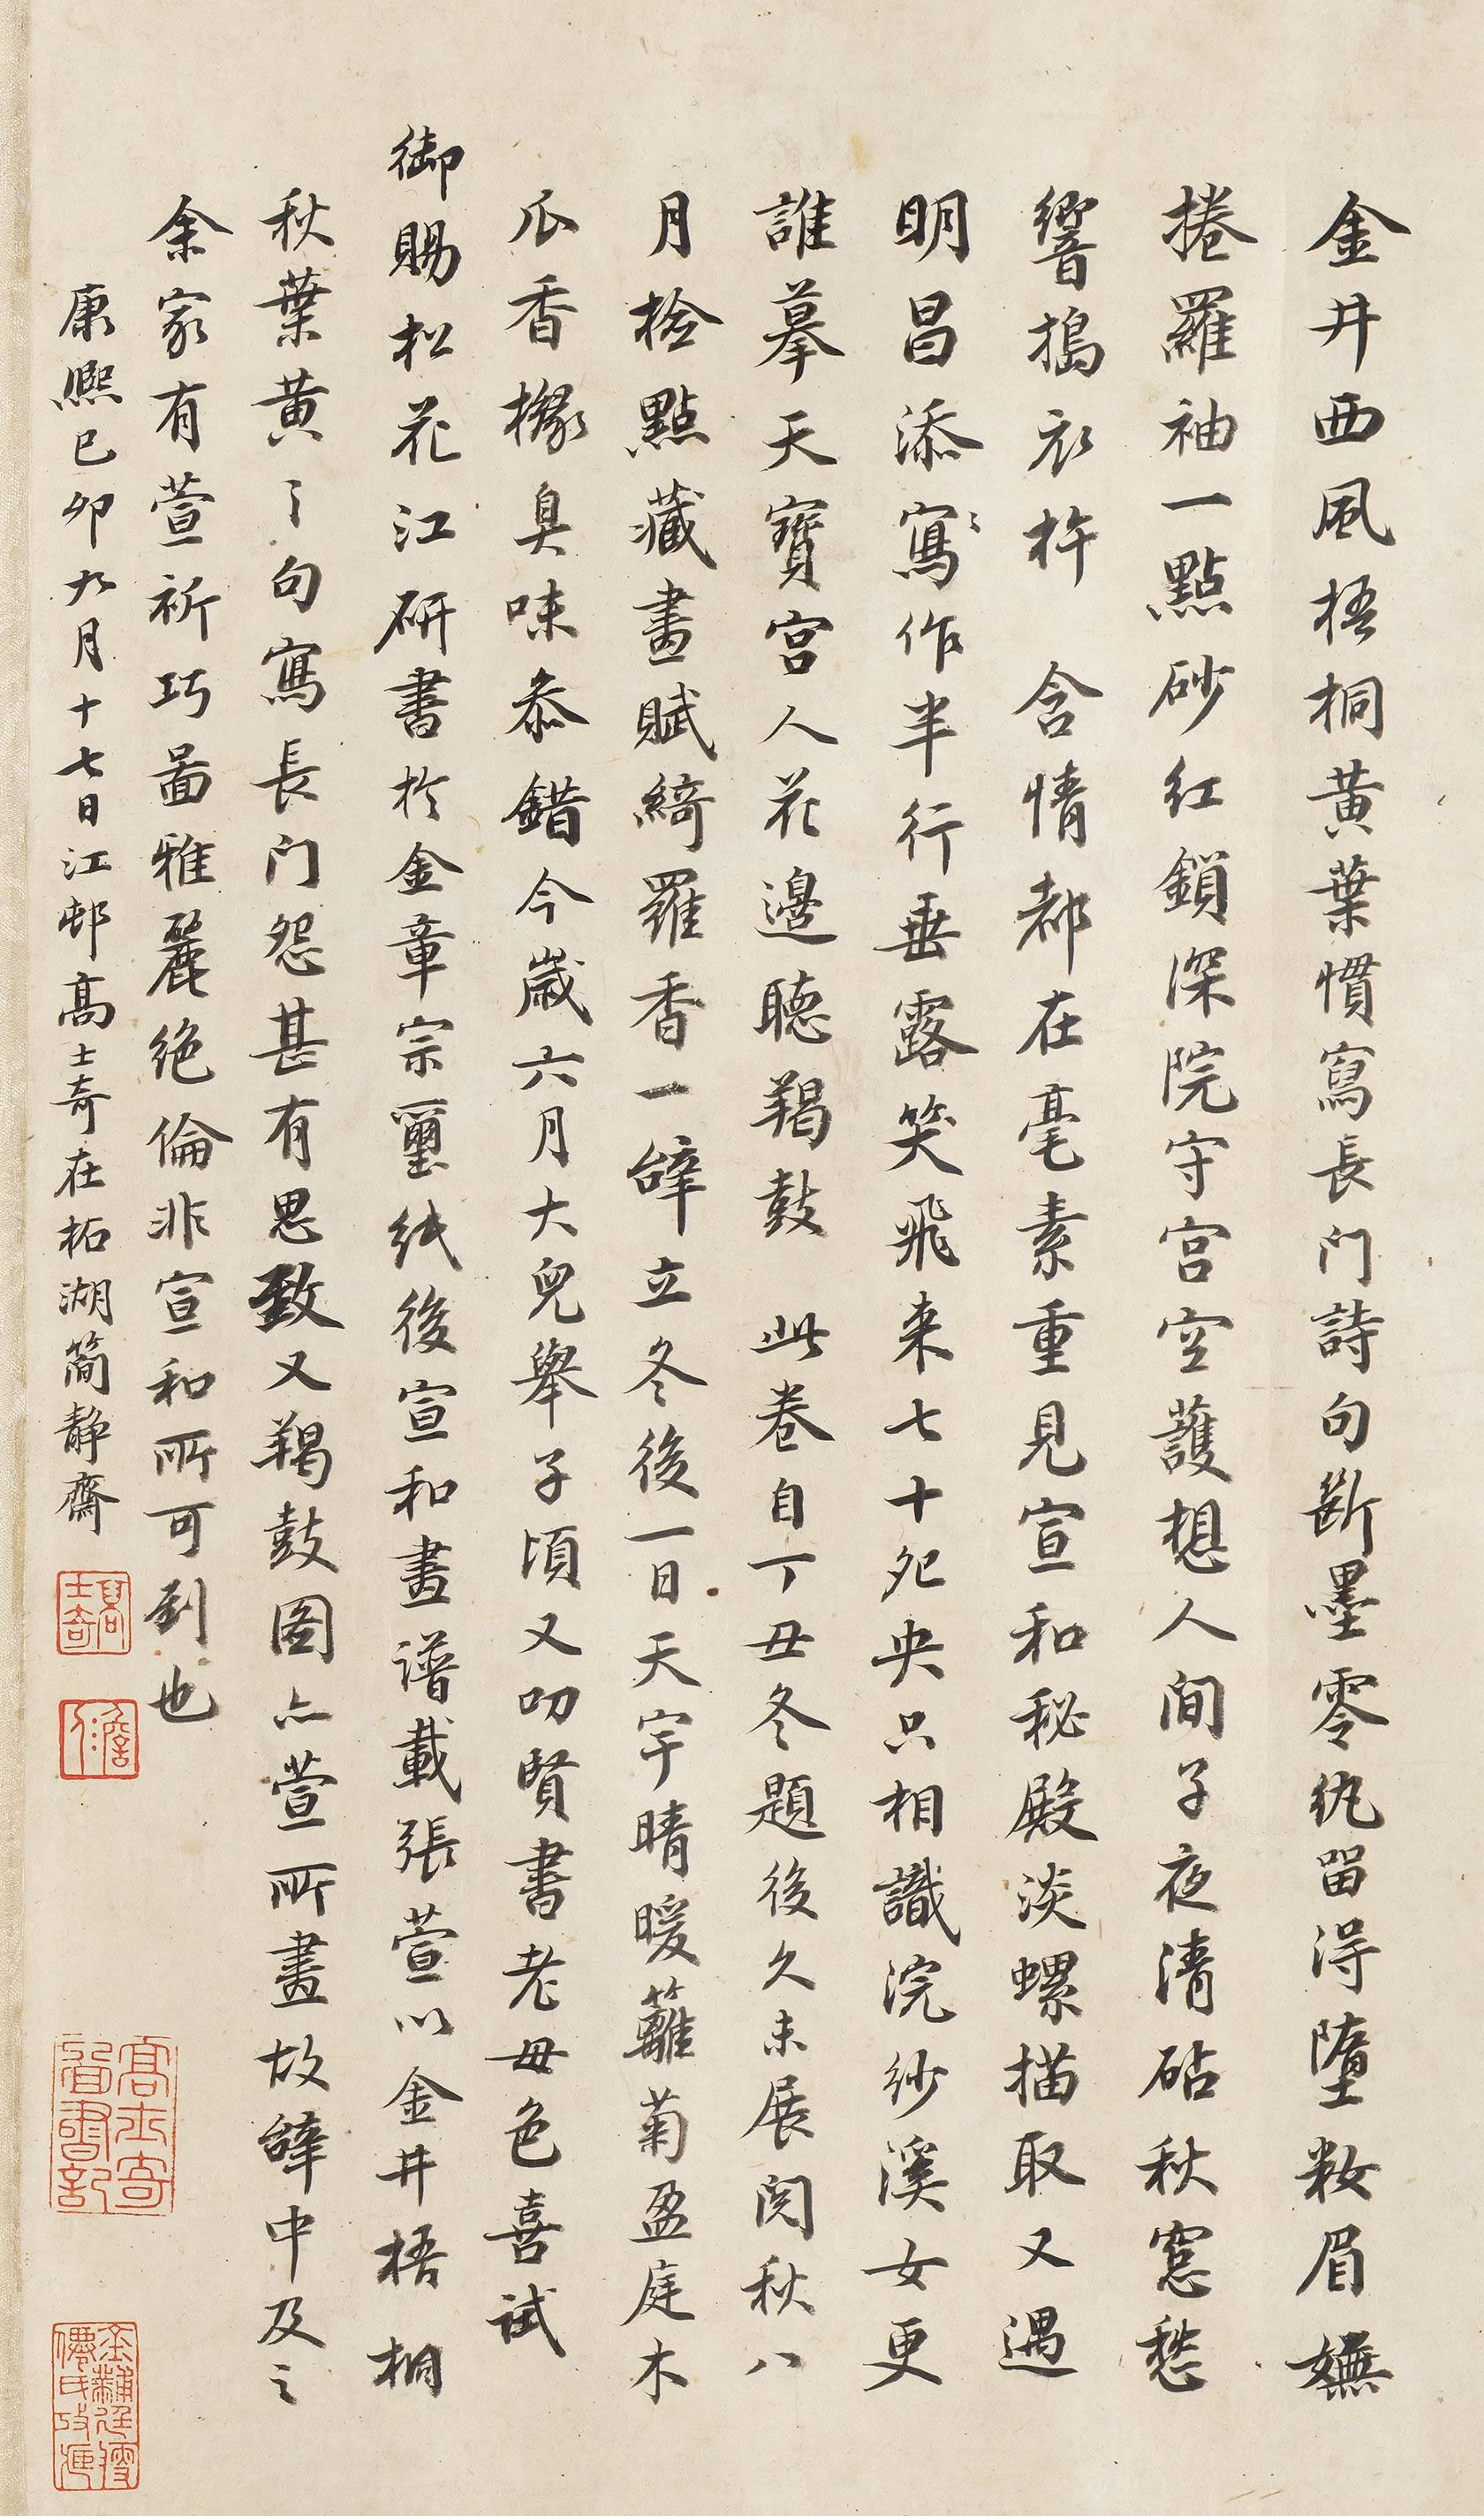 金井西風梧桐黃葉慣寫長門詩句斷墨零紈留淂墮粧眉嫵
捲羅袖一點砂紅鎖深院守宮空護想人间子夜清砧秋窓愁
響搗衣杵 含情都在毫素重見宣和秘殿淡螺描取又遇
明昌添寫作半行垂露笑飛来七十夗央只相識浣紗溪女更
誰摹天寶宮人花邊聽羯鼓 此卷自丁丑冬題後久未展閱秋八
月撿點藏畫賦綺羅香一辭立冬後一日天宇晴暖蘺菊盈庭木
瓜香櫞臭味叅錯今歲六月大兒舉子頃又叨賢書老母色喜試
御賜松花江硏書於金章宗璽紙後宣和畫譜載張萱以金井梧桐
秋葉黃之句寫長门怨甚有思致又羯鼓图亦萱所畫故辭中及之
余家有萱祈巧啚雅麗绝倫非宣和所可到也
康熙己卯九月十七日江邨高士奇在柘湖简静齋
高士奇
澹人
高士奇圖書記